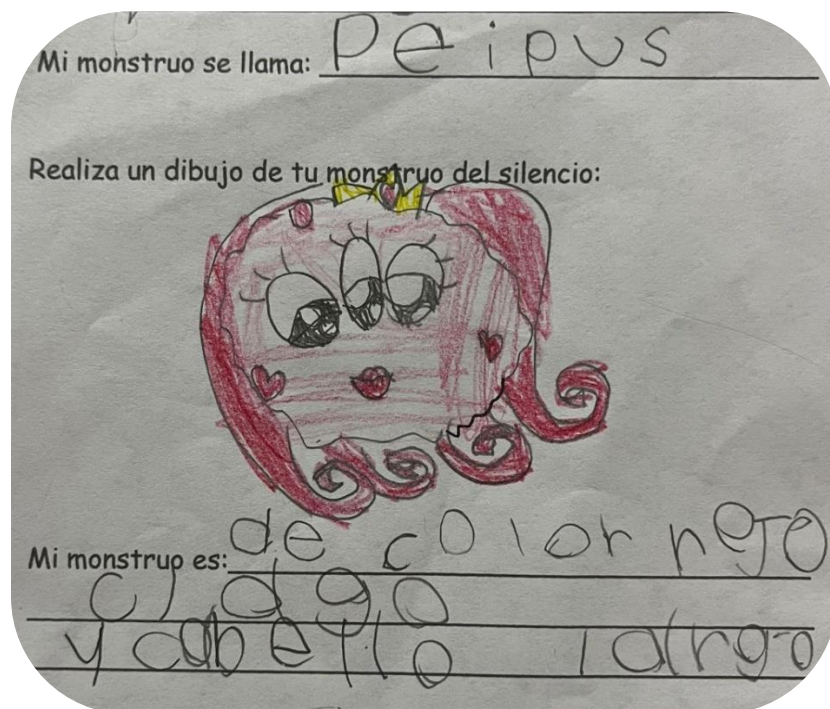 Mi monstruo se llama: Peipus
Realiza un dibujo de tu monstruo del silencio:
Mi monstruo es: de color
y cabello largo